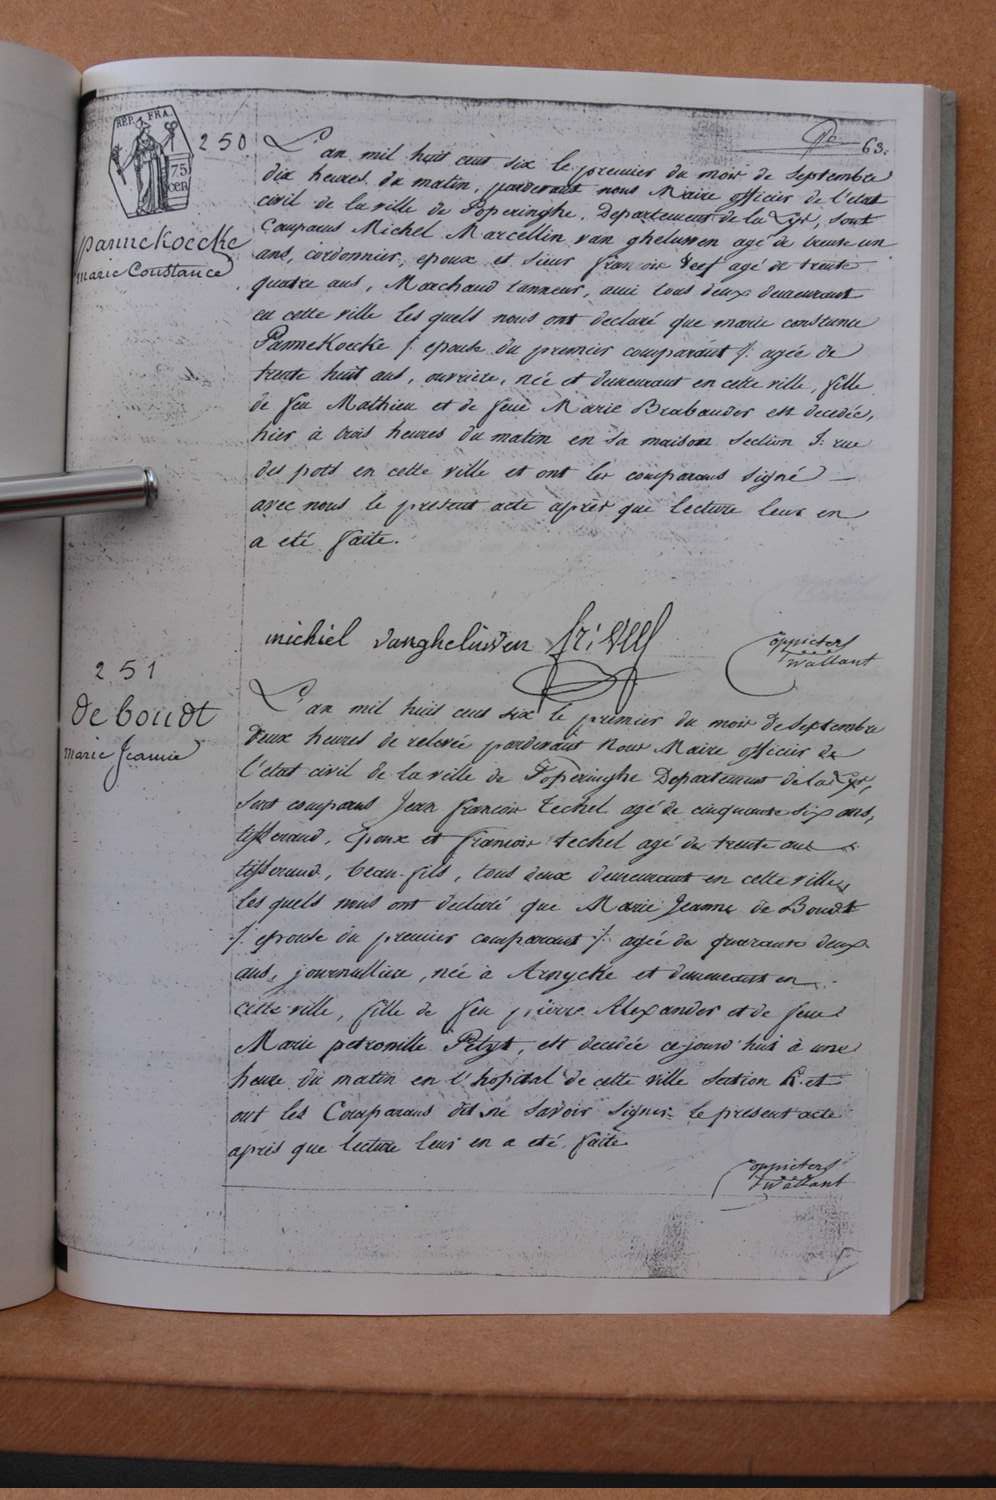 REP. FRA.
75
cen
63.
250
Pannekoecke
marie Constance
L'an mil huit cent six le premier du mois de Septembre
dix heures du matin, pardevant nous Maire officier de l'etat
civil de la ville de Poperinghe, Departement de la Lys, sont
Comparus Michel Marcellin van ghelüwen agé de trente un
ans, cordonnier, epoux et Sieur francois Veef agé de trente
quatre ans, Marchand tanneur, ami tous deux demeurant
en cette ville les quels nous ont declaré que marie constance
PanneKoecke /: epouse du premier comparant /: agée de
trente huit ans, ouvriere, née et demeurant en cette ville, fille
de feu Mathieu et de feue Marie Brabander est decedée,
hier à trois heures du matin en sa maison Section J: rue
des pots en cette ville et ont les comparans signé
avec nous le present acte après que lecture leur en
a eté faite.
michiel vanghelüwen
251
de boudt
marie Jeanne
L'an mil huit cent six le premier du mois de Septembre
Deux heures de relevée pardevant Nous Maire officier de
l'etat civil de la ville de Poperinghe Departement de la Lys,
sont comparus Jean francois Techel agé de cinquante six ans,
tisserand, Epoux et francois techel agé de trente ans
tisserand, beau-fils, tous deux demeurant en cette ville,
les quels nous ont declaré que Marie Jeanne de Boudt
/: epouse du premier comparant /: agée de quarante deux
ans, journalliere, née à Arnycke et demeurant en
cette ville, fille de feu pierre Alexander et de feue
Marie petronille Petyt, est decedée ce jourd'hui à une
heure du matin en l'hopital de cette ville section K. et
ont les Comparans dit ne savoir signer le present acte
après que lecture leur en a eté faite